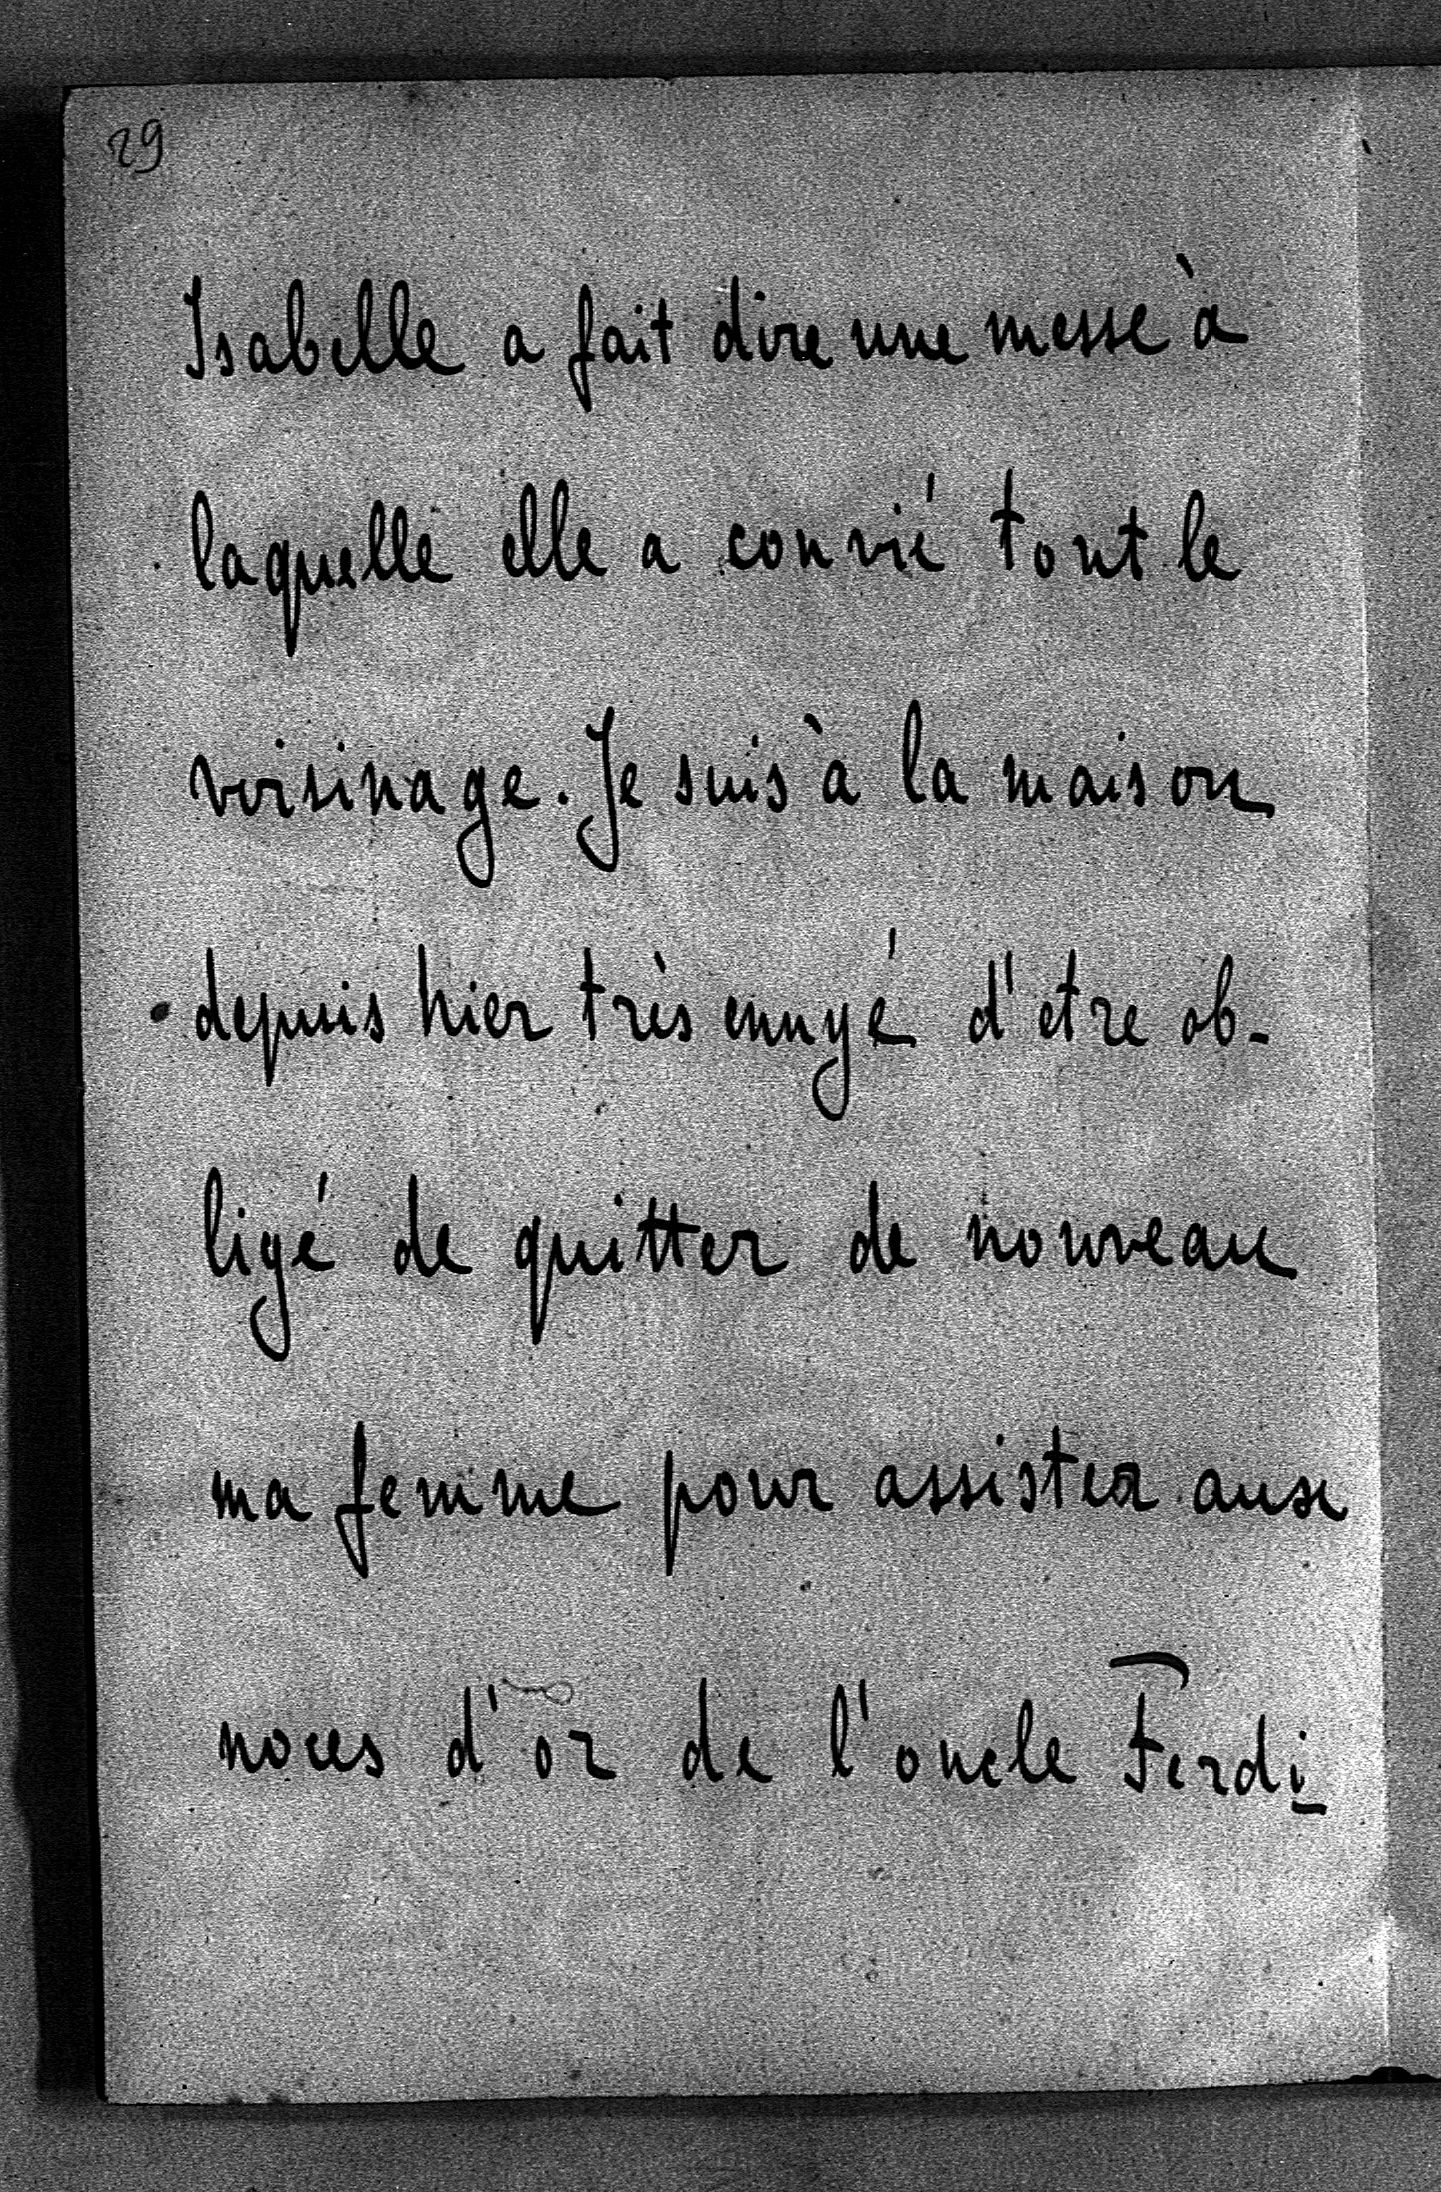 29
Isabelle a fait dire une messe à
laquelle elle a convié tout le
voisinage. Je suis à la maison
depuis hier très ennyé d'etre ob-
ligé de quitter de nouveau
ma femme pour assister aux
noces d'or de l'oncle Ferdi